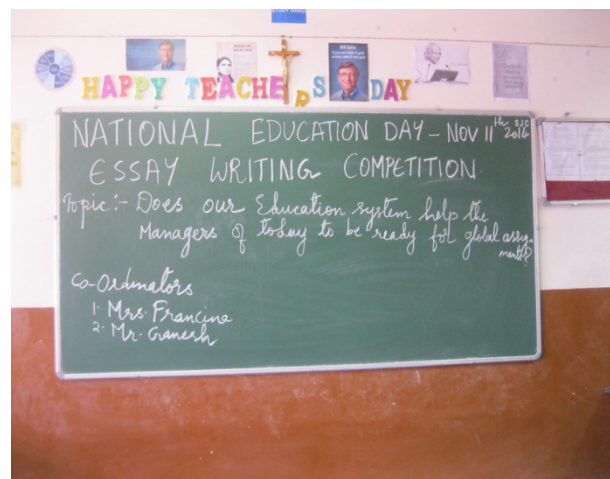 HAPPY TEACHERS DAY
NATIONAL EDUCATION DAY - NOV 11th 2016 SJC
ESSAY WRITING COMPETITION
Topic:- Does our Education system help the
Managers of today to be ready for global assign-
ments?
Co-Ordinators
1. Mrs. Francina
2. Mr. Ganesh